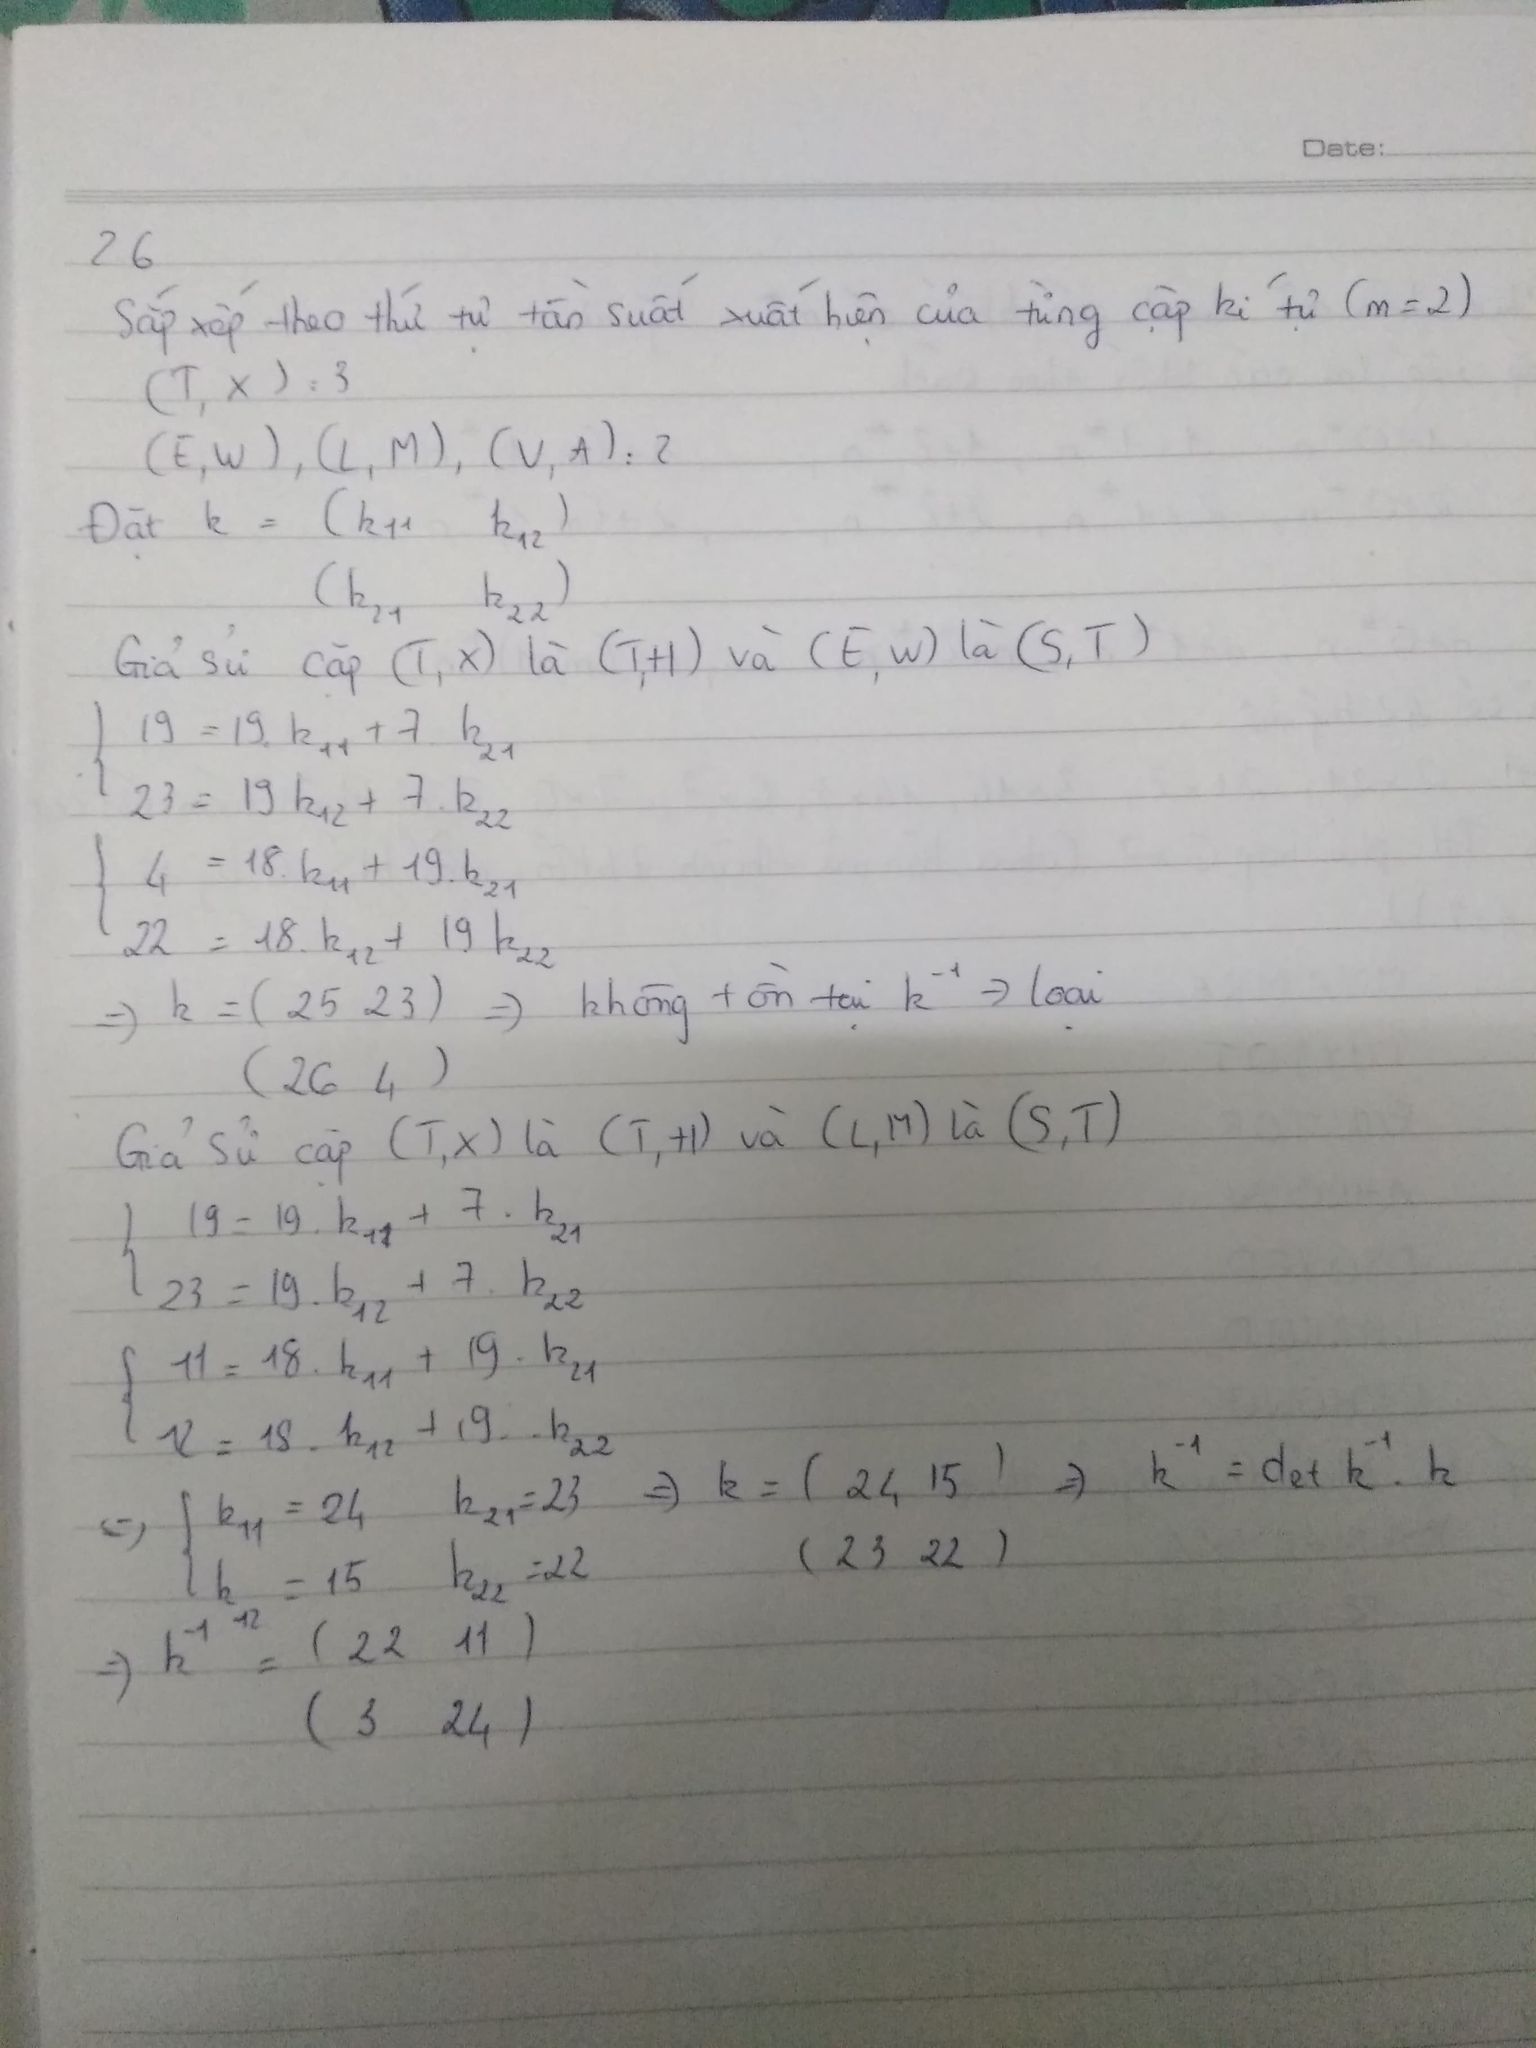 Date:
26
Sắp xếp theo thứ tự tần suất xuất hiện của từng cặp kí tự (m=2)
(T, X) : 3
(E, W), (L, M), (V, A) : 2
Đặt k = (k11 k12)
(k21 k22)
Giả sử cặp (T, X) là (T, H) và (E, W) là (S, T)
{ 19 = 19. k11 + 7. k21
23 = 19 k12 + 7. k22
{ 4 = 18. k11 + 19. k21
22 = 18. k12 + 19 k22
=> k = ( 25 23 ) => không tồn tại k^-1 => loại
( 26 4 )
Giả sử cặp (T, X) là (T, H) và (L, M) là (S, T)
{ 19 = 19. k11 + 7. k21
23 = 19. k12 + 7. k22
{ 11 = 18. k11 + 19. k21
12 = 18. k12 + 19. k22
=> { k11 = 24 k21 = 23 => k = ( 24 15 ) => k^-1 = det k^-1. k
k12 = 15 k22 = 22 ( 23 22 )
=> k^-1 = ( 22 11 )
( 3 24 )